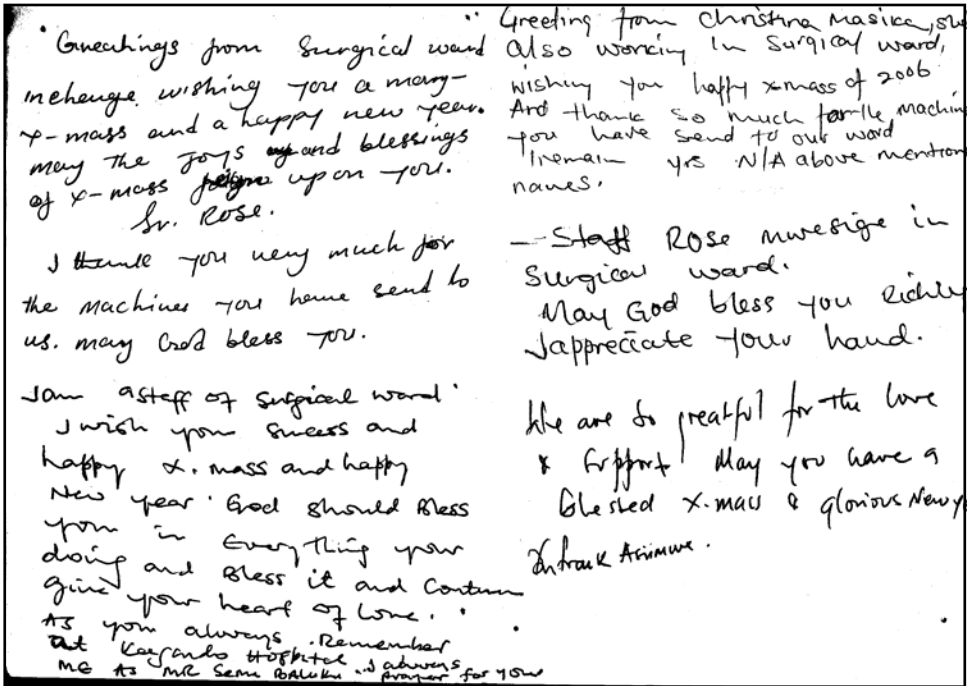 Greatings from Surgical ward
incharge wishing you a mary-
x-mass and a happy new year.
may the Joys and blessings
of x-mass upon you.
Sr. ROSE.
I thank you very much for
the machines you have send to
us. may God bless you.
Iam astaff of surgical ward
I wish your success and
happy x.mass and happy
New year. God should Bless
your in Everything your
doing and Bless it and Contun
give your heart of Love.
As your always. Remember
at Kagando Hospital I always
ME As MR Semu BALUKU prayer for your
Greeting from Christina Masika, she
also working in Surgical ward,
wishing you happy x-mass of 2006
And thank so much for the machin
you have send to our ward
Iremain yrs N/A above mention
names.
– Staff ROSE Mwesige in
Surgical ward.
May God bless you Richly
Iappreciate your hand.
We are so greatful for the love
& Support May you have a
blessed x-mass & glorious New y